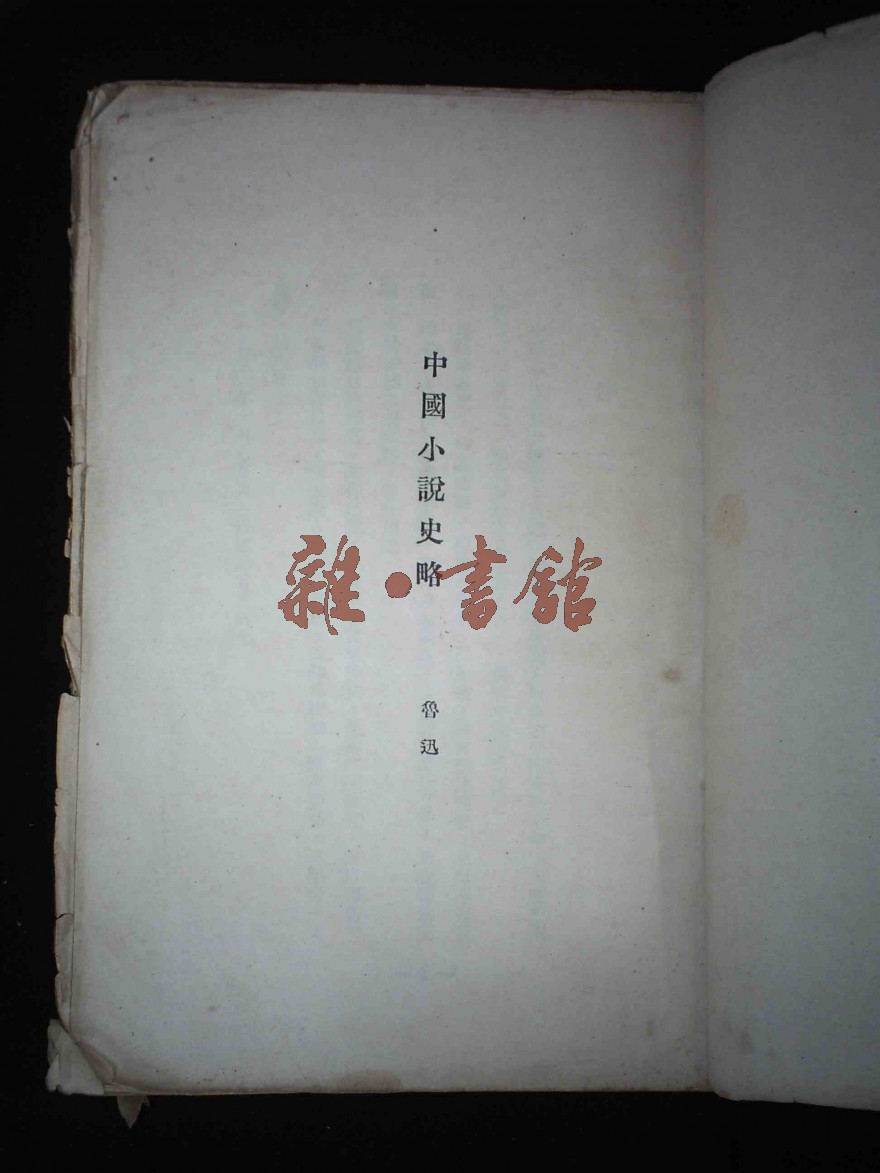 中國小說史略
雜·書館
魯迅